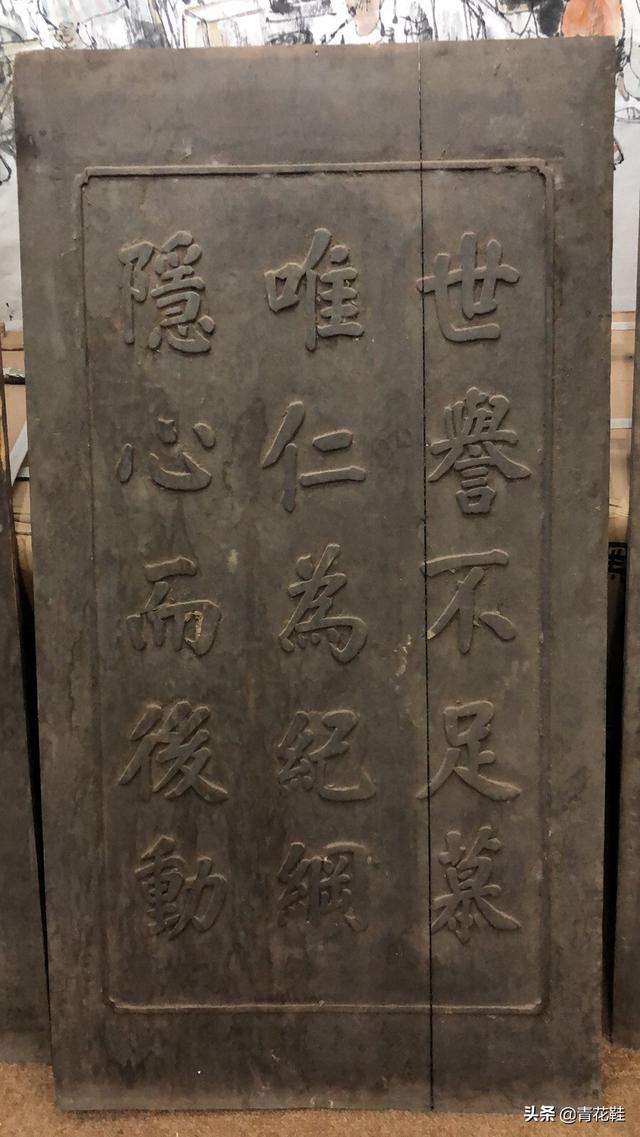 世譽不足慕
唯仁為紀綱
隱心而後動
头条 @青花鞋